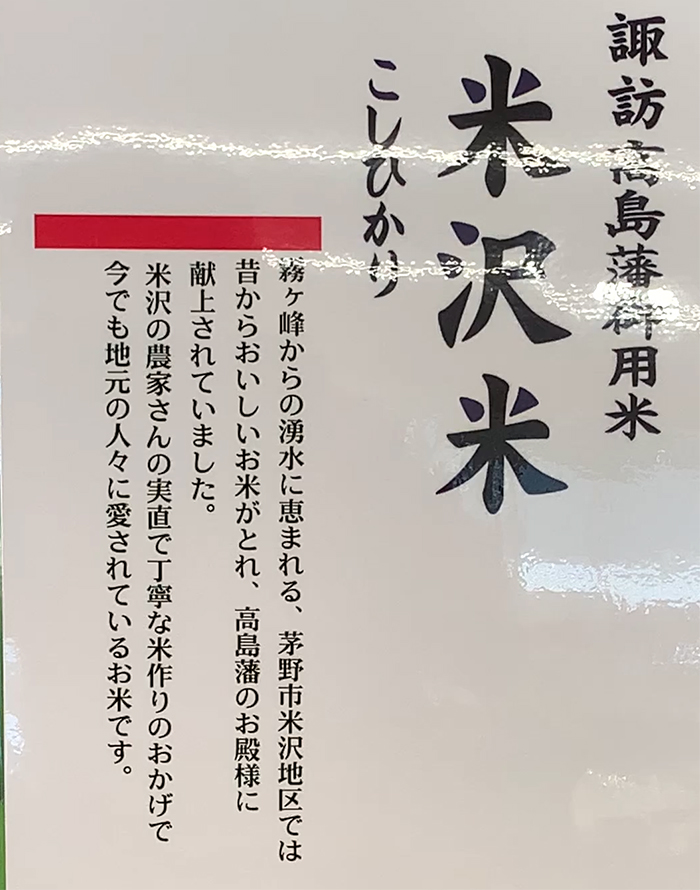 諏訪高島藩御用米
米沢米
こしひかり
霧ヶ峰からの湧水に恵まれる、茅野市米沢地区では
昔からおいしいお米がとれ、高島藩のお殿様に
献上されていました。
米沢の農家さんの実直で丁寧な米作りのおかげで
今でも地元の人々に愛されているお米です。